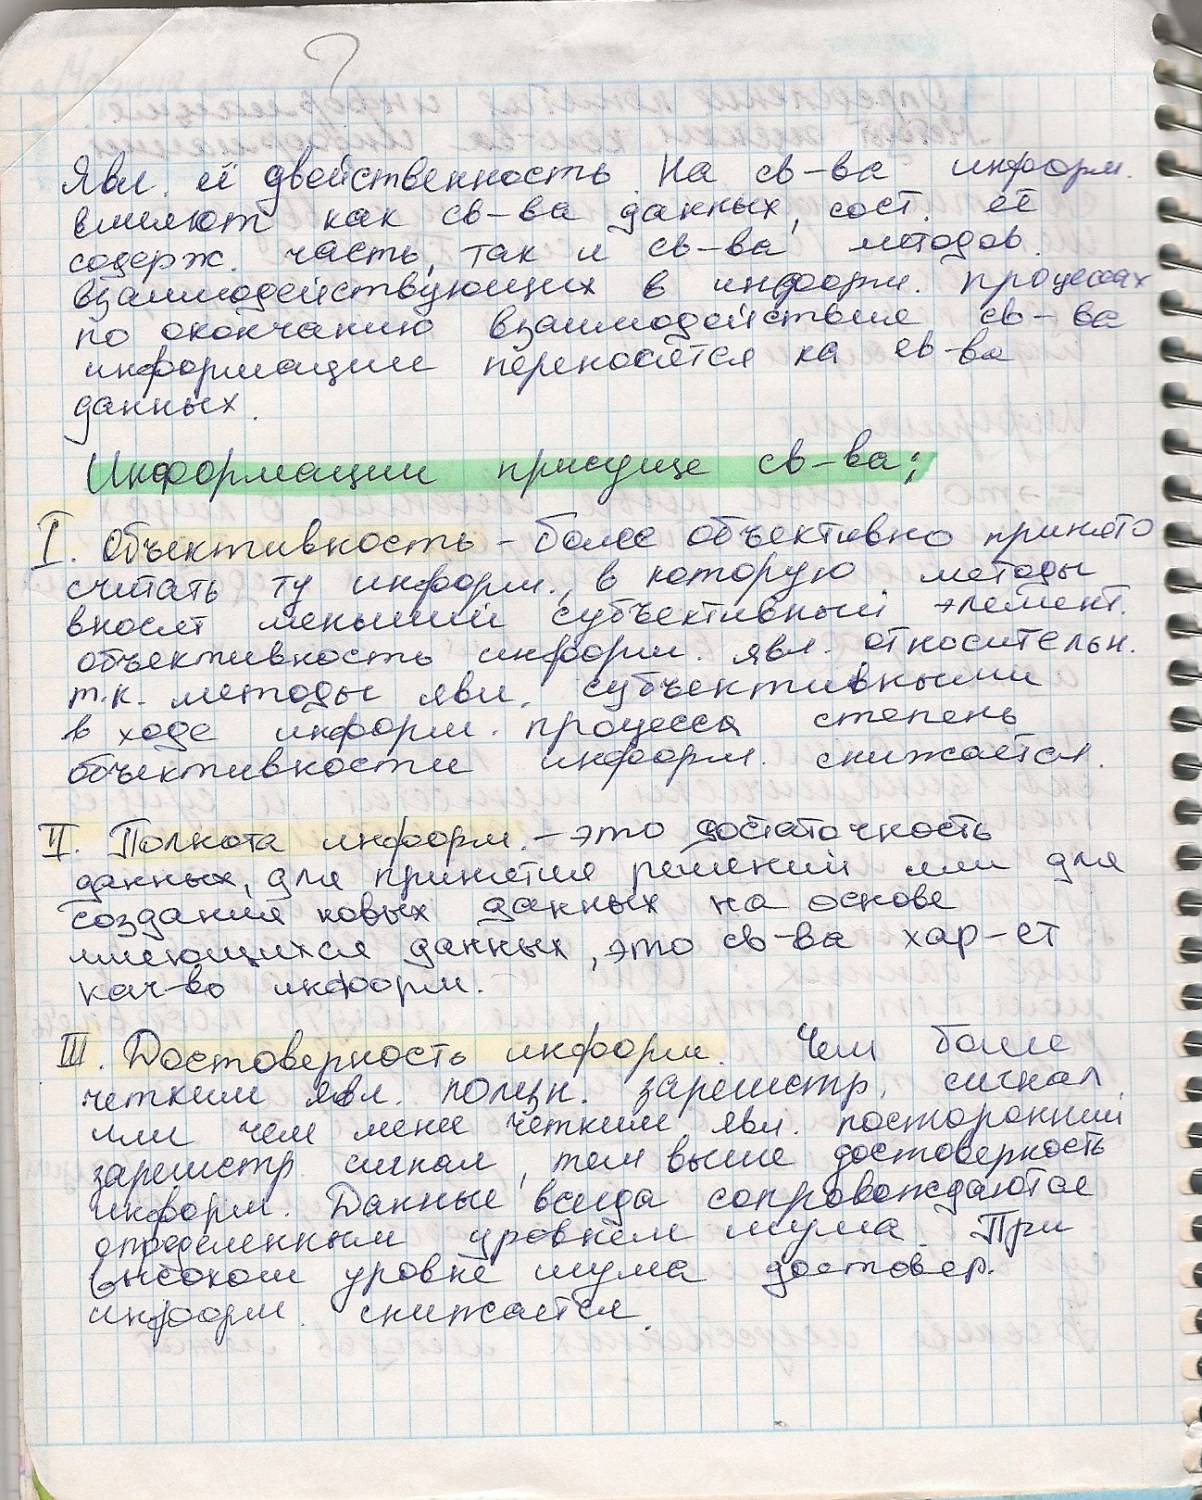 ?
Явл. её двойственность. На св-ва информ.
влияют как св-ва данных, сост. её
содерж. часть, так и св-ва методов.
взаимодействующих в информ. процессах
по окончанию взаимодействия св-ва
информации переносятся на св-ва
данных.
Информации присуще св-ва;
I. Объективность - более объективно принято
считать ту информ., в которую методы
вносят меньший субъективный элемент.
объективность информ. явл. относительн.
т.к. методы явл. субъективными
в ходе информ. процесса степень
объективности информ. снижается.
II. Полнота информ. - это достаточность
данных, для принятия решений или для
создания новых данных на основе
имеющихся данных, это св-ва хар-ет
кач-во информ.
III. Достоверность информ. Чем более
четким явл. полезн. зарегистр. сигнал
или чем менее четким явл. посторонний
зарегистр. сигнал, тем выше достоверность
информ. Данные всегда сопровождаются
определенным уровнем шума. При
высоком уровне шума достовер.
информ. снижается.